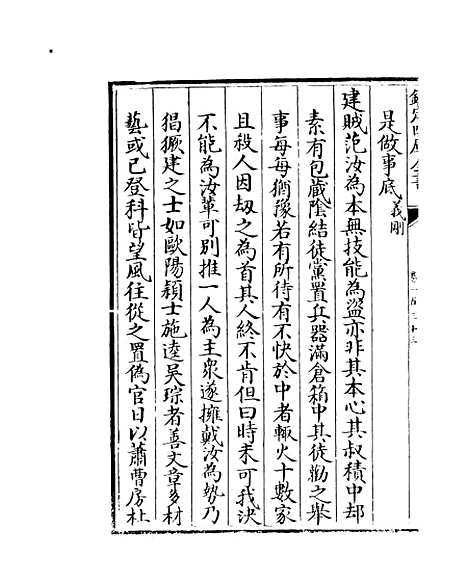 是做事底義剛
建賊范汝為本無技能為盜亦非其本心其叔積中却
素有包藏陰結徒黨置兵器滿倉箱中其徒勸之舉
事每每猶豫若有所待有不快於中者輙火十數家
且殺人因刼之為首其人終不肯但曰時未可我決
不能為汝軰可別推一人為主衆遂擁戴汝為勢乃
猖獗建之士如歐陽穎士施逵吴琮者善文章多材
藝或已登科皆望風往從之置偽官日以蕭曹房杜